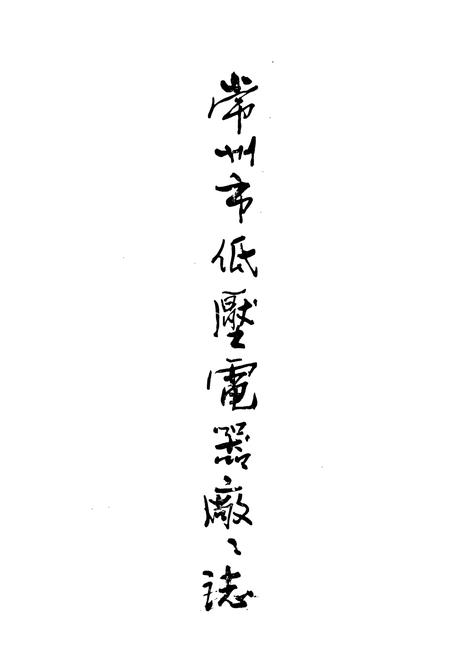 常州市低壓電器廠廠誌